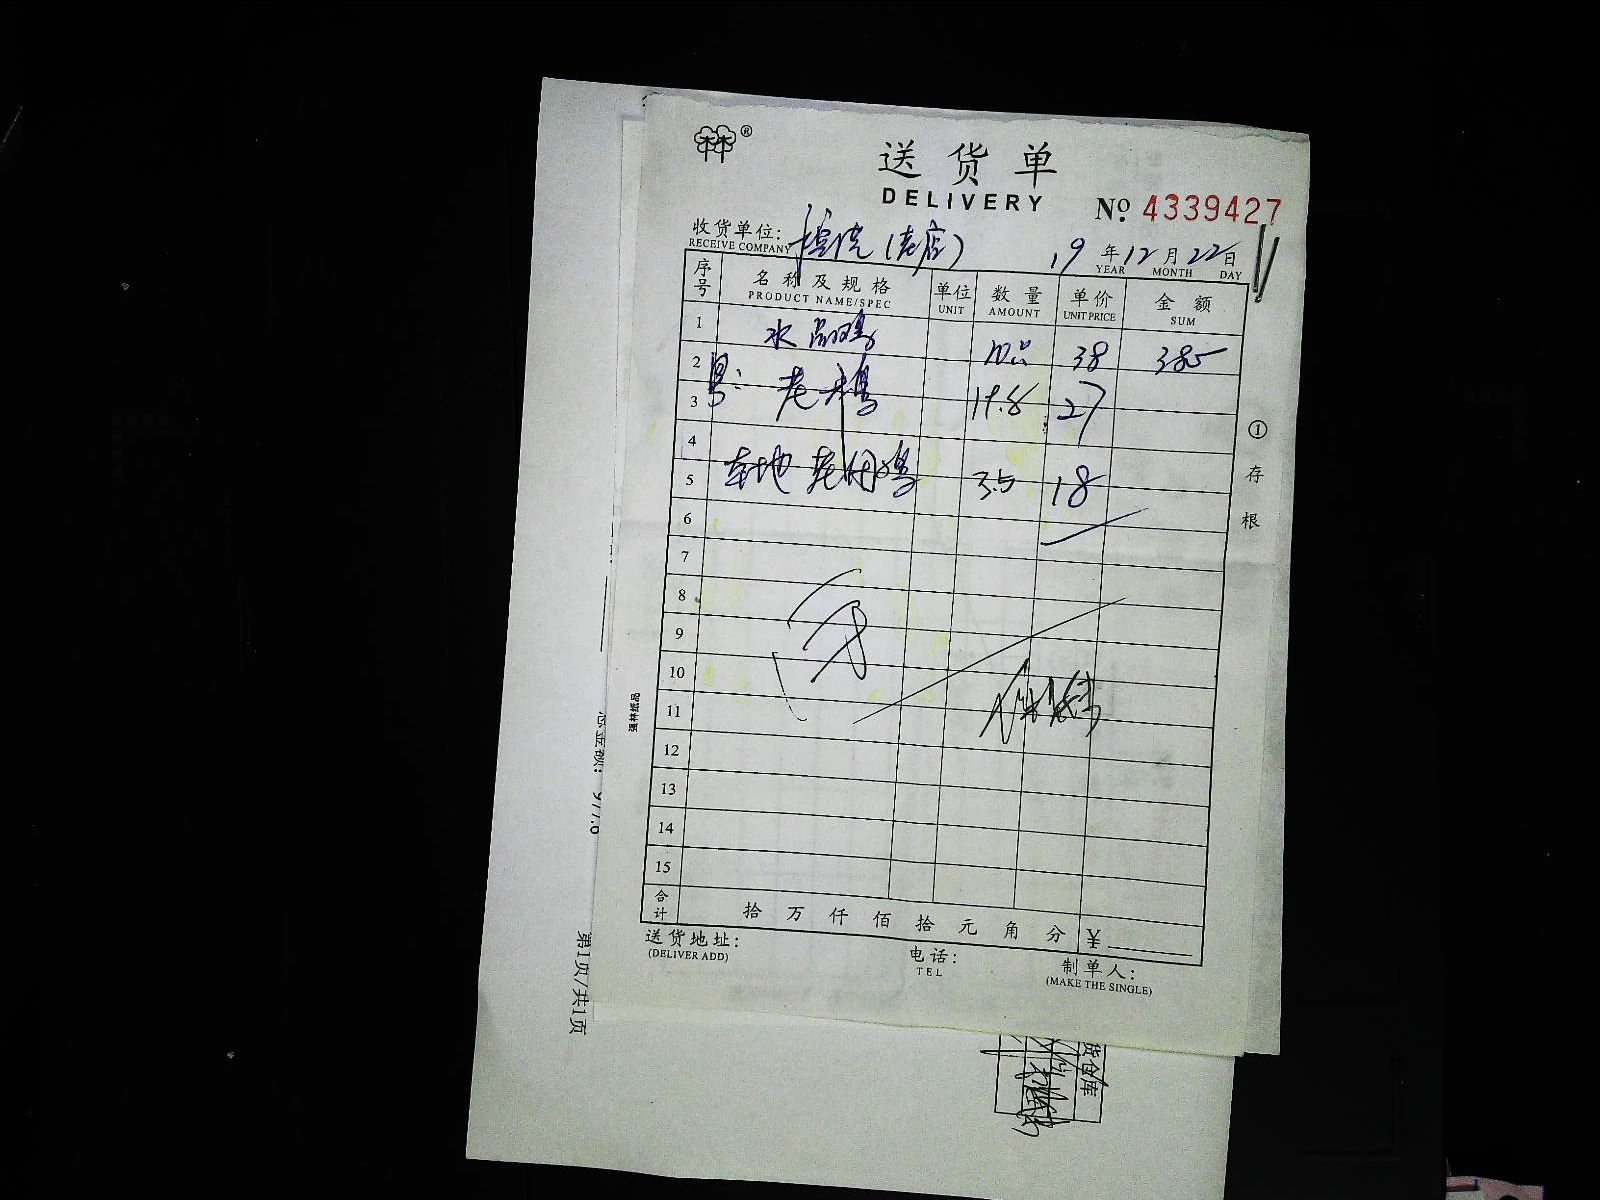 送货单
DELIVERY
№ 4339427
收货单位: (老店) 19年12月22日
RECEIVE COMPANY YEAR MONTH DAY
序号 名称及规格 单位 数量 单价 金额
PRODUCT NAME/SPEC UNIT AMOUNT UNIT PRICE SUM
1 水晶鸡 10只 38 385
2
3 老 鸡 19.8 27
4
5 本地老 鸡 35 18
6
7
8
9
10
11
12
13
14
15
合计 拾万仟佰拾元角分 ¥
送货地址: 电话: 制单人:
(DELIVER ADD) TEL (MAKE THE SINGLE)
①存根
强林纸品
总金额: 977.6
第1页/共1页
货仓库